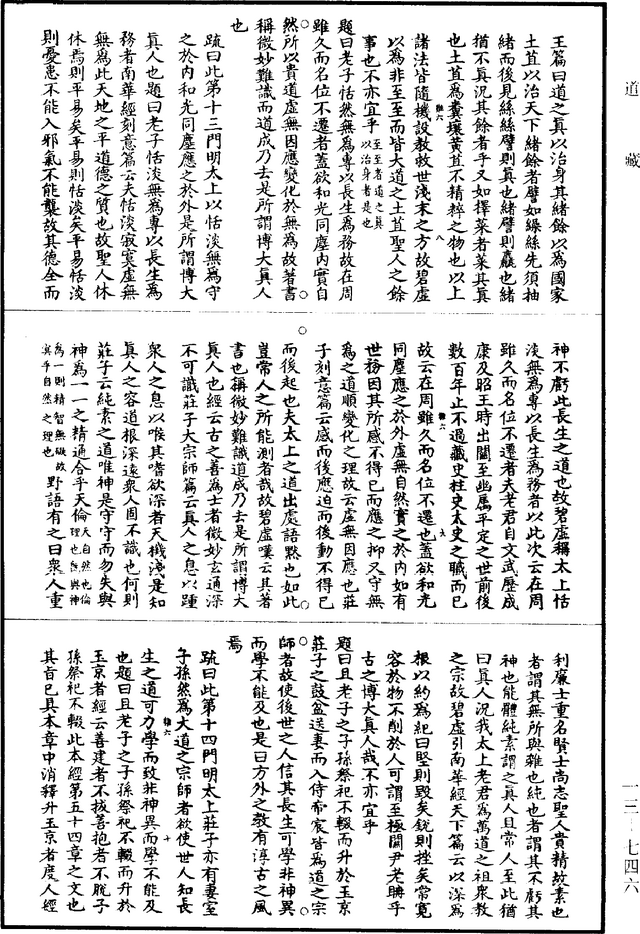 道藏
王篇曰道之真以治身其緒餘以為國家
土苴以治天下緒餘者譬如繰絲先須抽
緒而後見絲絲譬則真也緒譬則麤也緒
猶不真況其餘者乎又如擇菜者菜其真
也土苴為糞壤黃苴不精粹之物也以上
諸法皆隨機設教救世淺末之方故碧虛
以為非至至而皆大道之土苴聖人之餘
事也不亦宜乎至至者道之真以治身者是也
題曰老子恬然無為專以長生為務故在周
雖久而名位不遷者蓋欲和光同塵内實自
然所以貴道虛無因應變化於無為故著書
稱微妙難識而道成乃去是所謂博大真人
也
疏曰此第十三門明太上以恬淡無為守
之於内和光同塵應之於外是所謂博大
真人也題曰老子恬淡無為專以長生為
務者南華經刻意篇云夫恬淡寂寞虛無
無為此天地之平道德之質也故聖人休
休焉則平易矣平易則恬淡矣平易恬淡
則憂患不能入邪氣不能襲故其德全而
神不虧此長生之道也故碧虛稱太上恬
淡無為專以長生為務者以此次云在周
雖久而名位不遷者夫老君自文武歷成
康及昭王時出關至幽厲平定之世前後
數百年止不過藏史柱史太史之職而已
故云在周雖久而名位不遷也蓋欲和光
同塵應之於外虛無自然實之於内如有
世務因其所感不得已而應之抑又守無
為之道順變化之理故云虛無因應也莊
子刻意篇云感而後應迫而後動不得已
而後起也夫太上之道出處語默也如此
豈常人之所能測者哉故碧虛嘆云其著
書也稱微妙難識道成乃去是所謂博大
真人也經云古之善為士者微妙玄通深
不可識莊子大宗師篇云真人之息以踵
衆人之息以喉其嗜欲深者天機淺是知
真人之容道根深遠衆人固不識也何則
莊子云純素之道唯神是守守而勿失與
神為一一之精通合乎天倫天自然也倫理也既與神為一則精智無礙故冥乎自然之理也野語有之曰衆人重
利廉士重名賢士尚志聖人貴精故素也
者謂其無所與雜也純也者謂其不虧其
神也能體純素謂之真人且常人至此猶
曰真人況我太上老君為萬道之祖衆教
之宗故碧虛引南華經天下篇云以深為
根以約為紀曰堅則毀矣銳則挫矣常寬
容於物不削於人可謂至極關尹老聃乎
古之博大真人哉不亦宜乎
題曰且老子之子孫祭祀不輟而升於玉京
莊子之鼓盆送妻而入侍帝宸皆為道之宗
師者故使後世之人信其長生可學非神異
而學不能及也是曰方外之教有淳古之風
焉
疏曰此第十四門明太上莊子亦有妻室
子孫然為大道之宗師者欲使世人知長
生之道可力學而致非神異而學不能及
也題曰且老子之子孫祭祀不輟而升於
玉京者經云善建者不拔善抱者不脫子
孫祭祀不輟此本經第五十四章之文也
其旨已具本章中消釋升玉京者度人經
一三·七四六